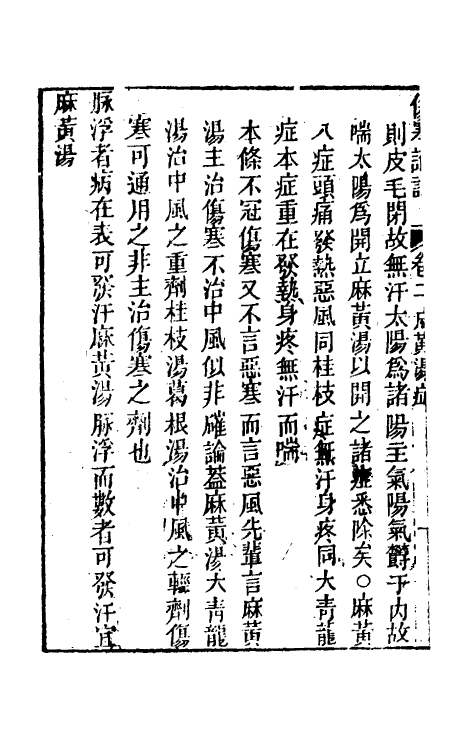 則皮毛閉故無汗太陽爲諸陽主氣陽氣欝于內故
喘太陽爲開立麻黃湯以開之諸症悉除矣○麻黃
八症頭痛發熱惡風同桂枝症無汗身疼同大青龍
症本症重在發熱身疼無汗而喘
本條不冠傷寒又不言惡寒而言惡風先輩言麻黃
湯主治傷寒不治中風似非確論葢麻黃湯大青龍
湯治中風之重劑桂枝湯葛根湯治中風之輕劑傷
寒可通用之非主治傷寒之劑也
脉浮者病在表可發汗麻黃湯脉浮而數者可發汗宜
麻黃湯